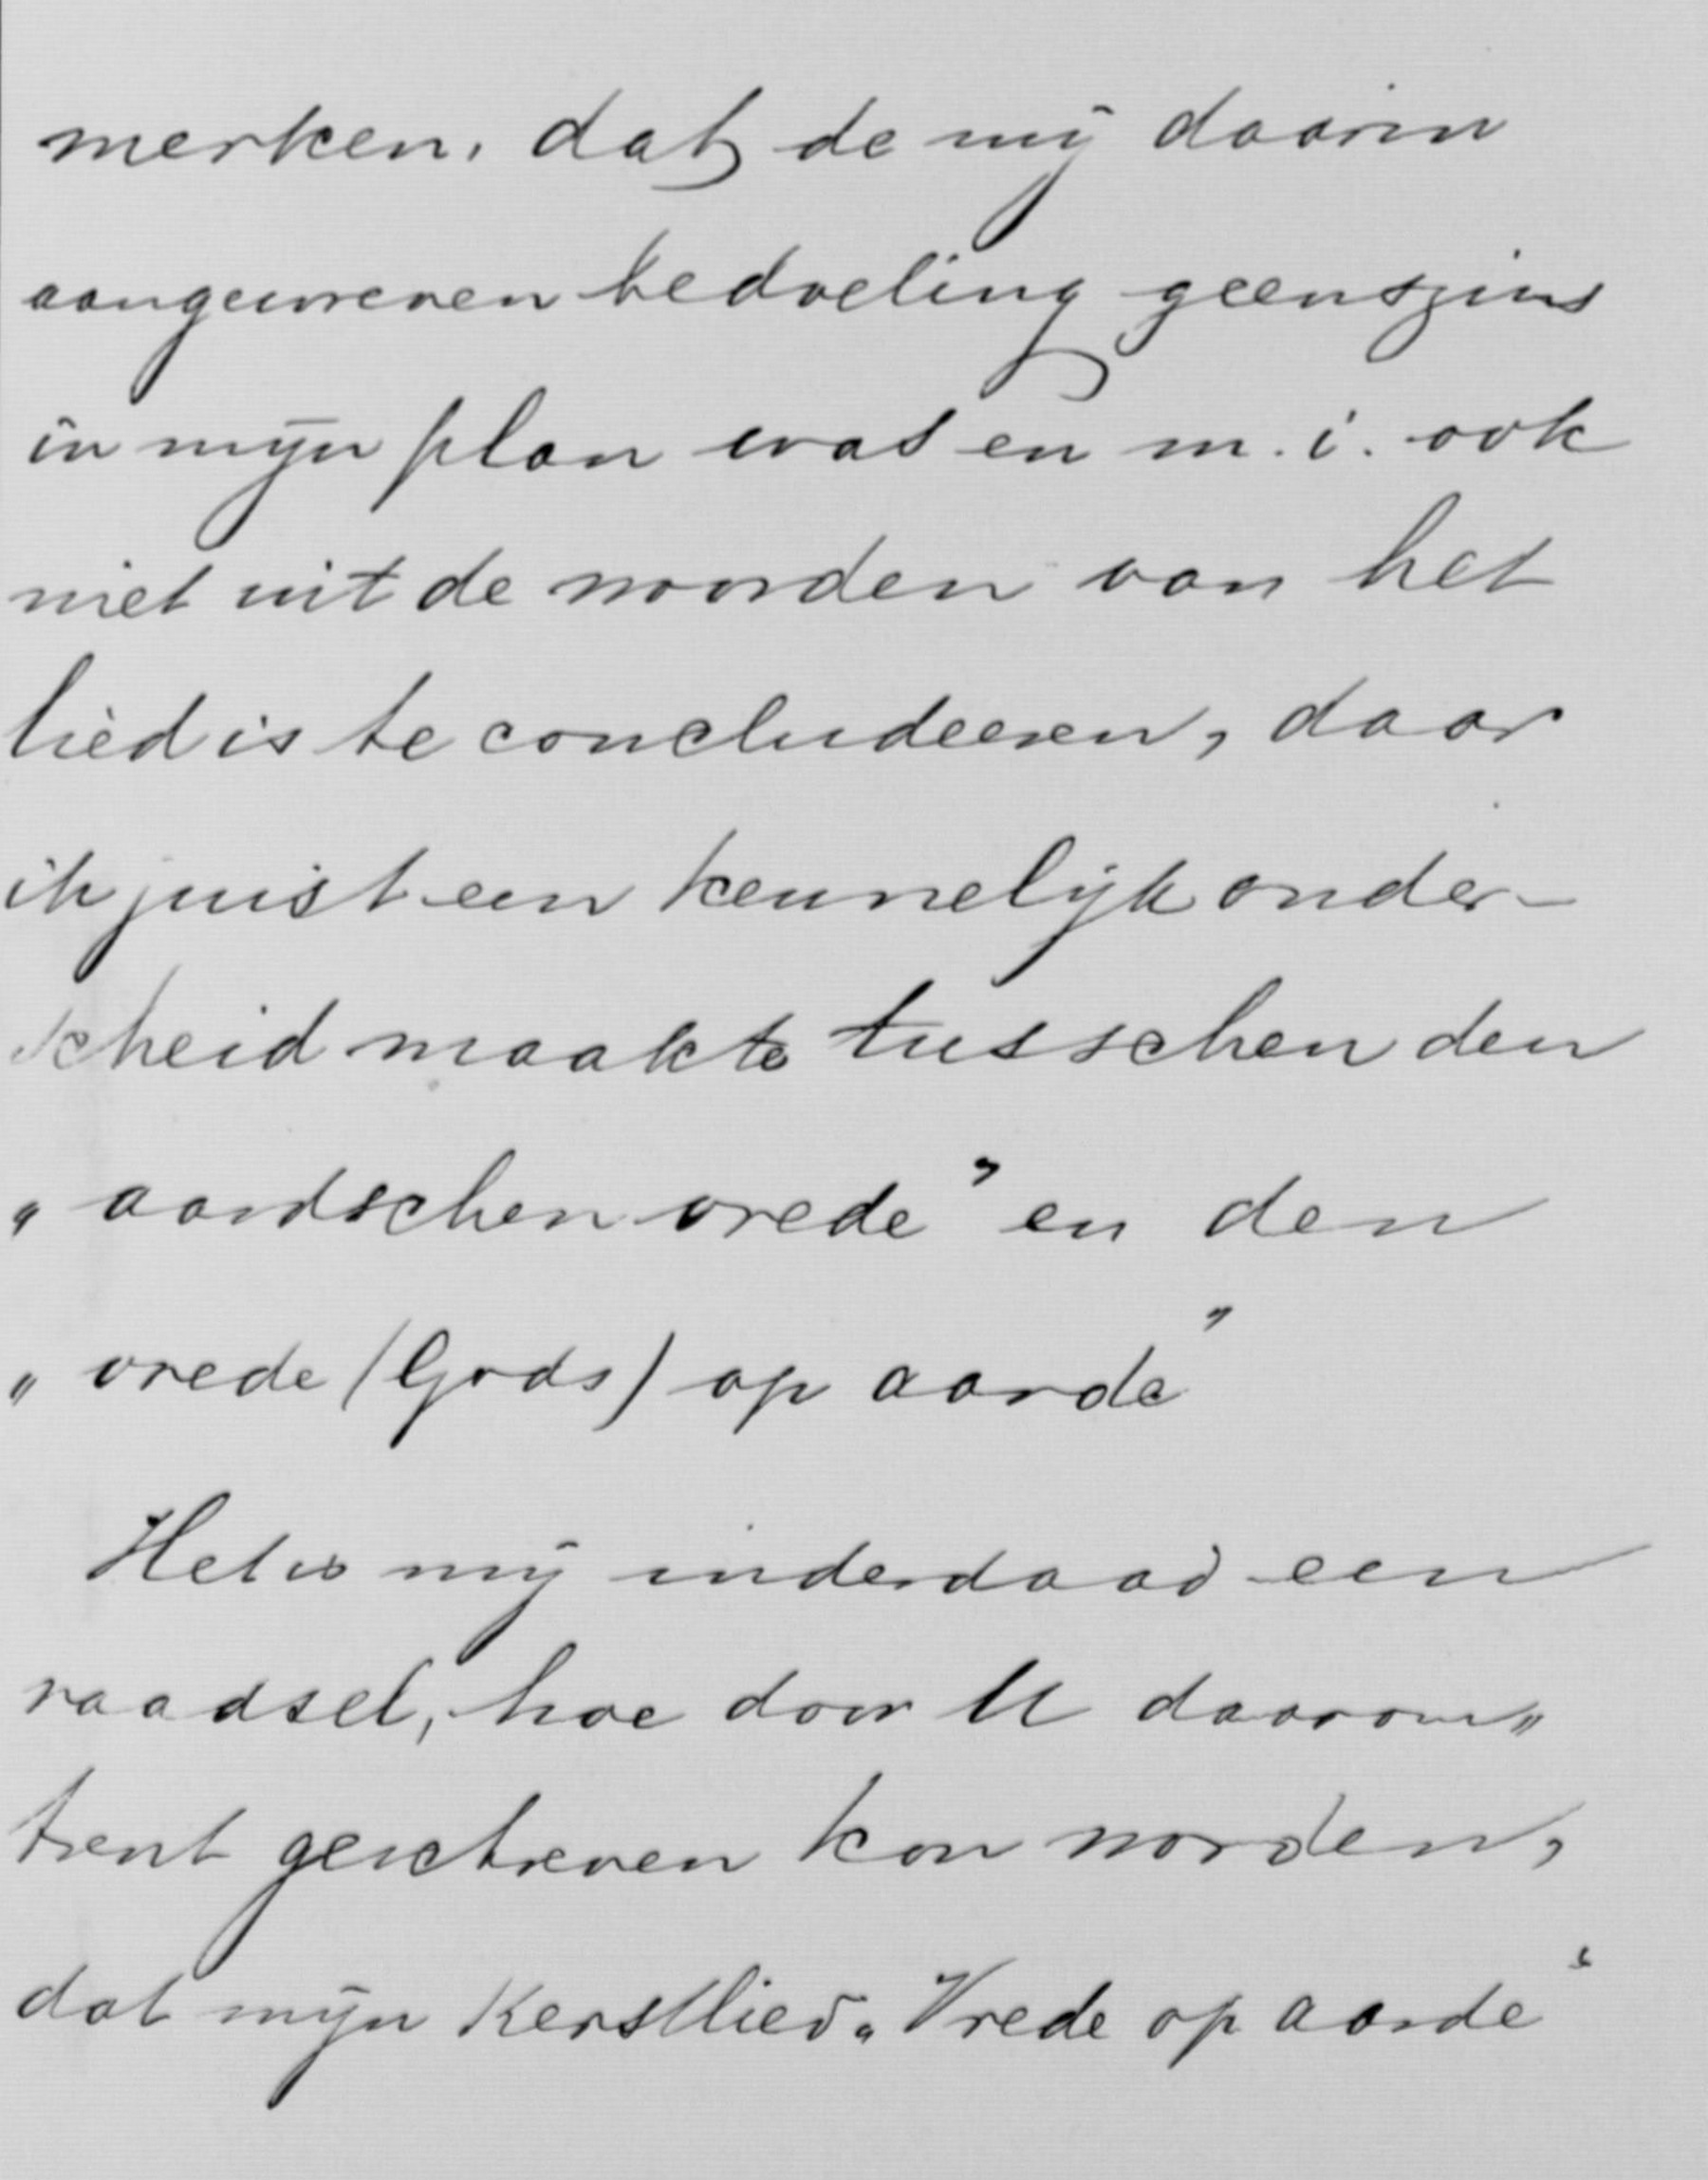 merken, dat de mij daarin
aangewreven bedoeling geenszins
in mijn plan was en m.i. ook
niet uit de woorden van het
lied is te concludeeren, daar
ik juist een kennelijk onder-
scheid maakte tusschen den
„aardschen vrede” en den
„vrede (Gods) op aarde”
Het is mij inderdaad een
raadsel, hoe door U daarom„
trent geschreven kon worden,
dat mijn Kerstlied „Vrede op aarde“